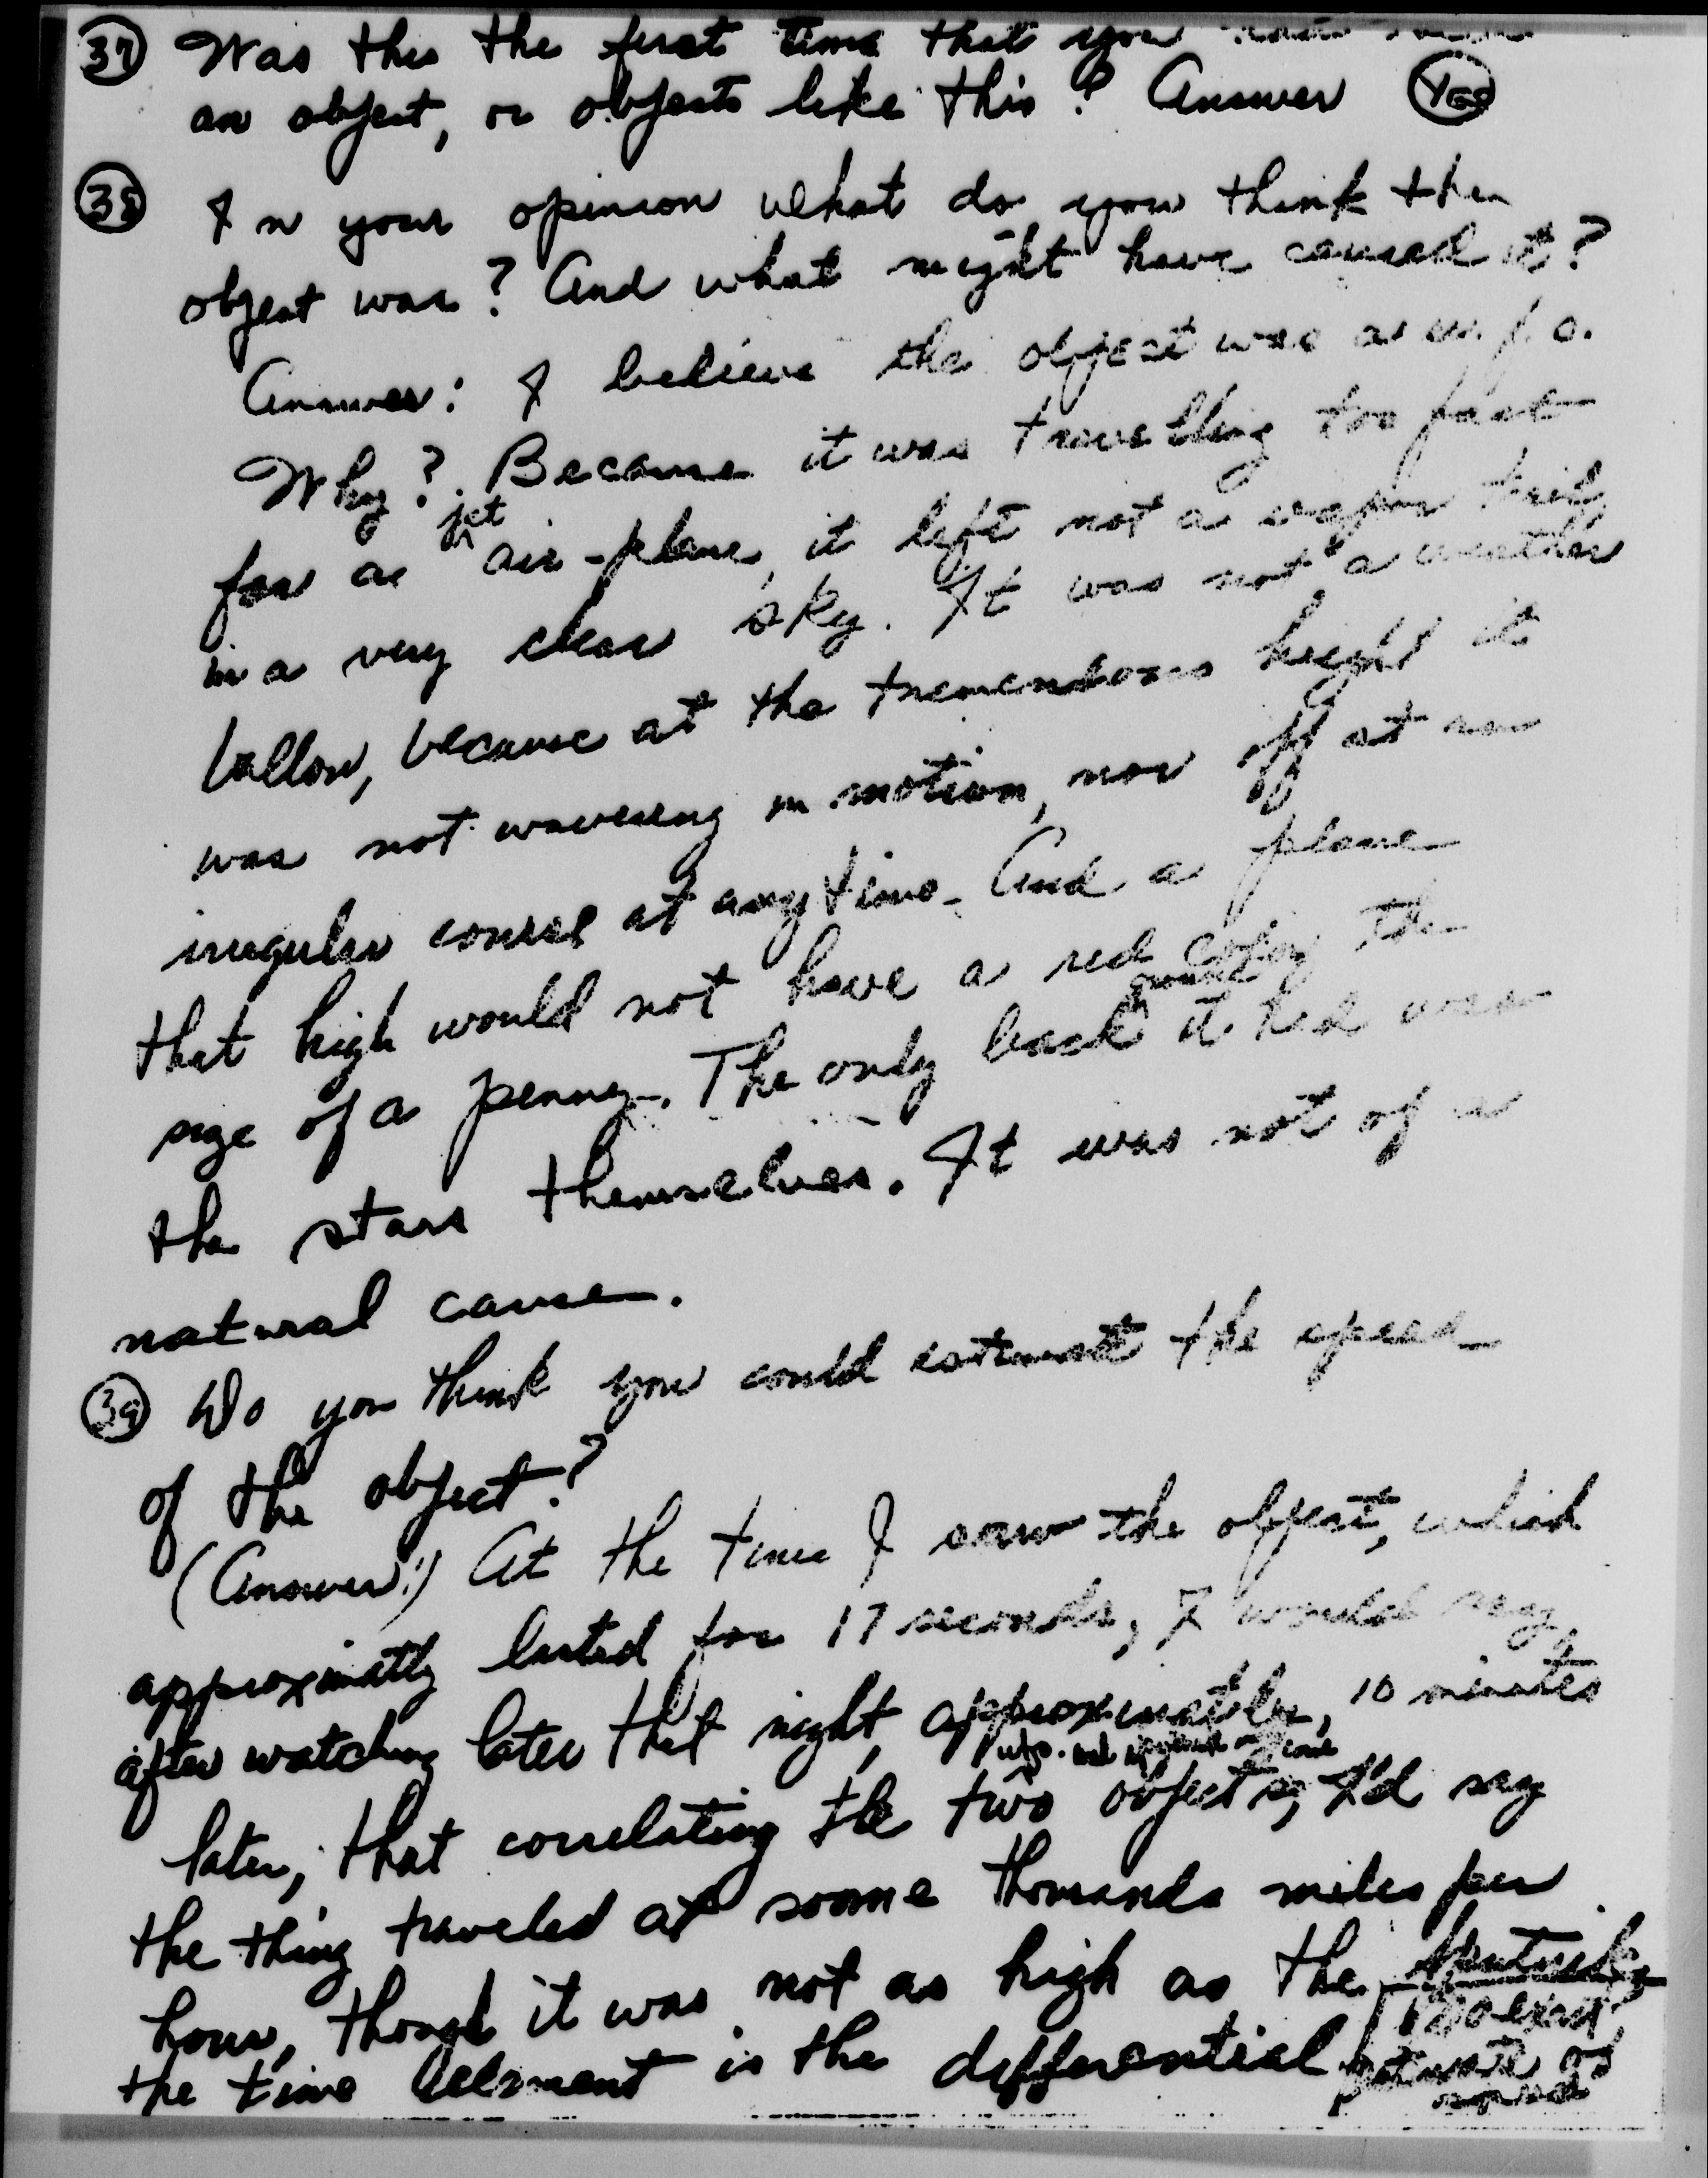 37 Was this the first time that you
an object, or objects like this? Answer Yes
38 In your opinion what do you think the
object was? And what might have caused it?
Answer: I believe the object was a u.f.o.
Why? Because it was travelling too fast
for a jet air-plane, it left not a vapor trail
in a very clear sky. It was not a weather
ballon, because at the tremendous height it
was not wavering in motion, nor off at an
irregular course at any time. And a plane
that high would not have a red color the
size of a penny. The only back it had was
the stars themselves. It was not of a
natural cause.
39 Do you think you could estimate the speed
of the object?
(Answer:) At the time I saw the object, which
approximatly lasted for 17 seconds, I would say,
after watching later that night, approximatly, 10 minutes
later, that correlating the two objects, I'd say
the thing traveled at some thousands miles per
hour, though it was not as high as the Sputnik,
the time lelement is the differential